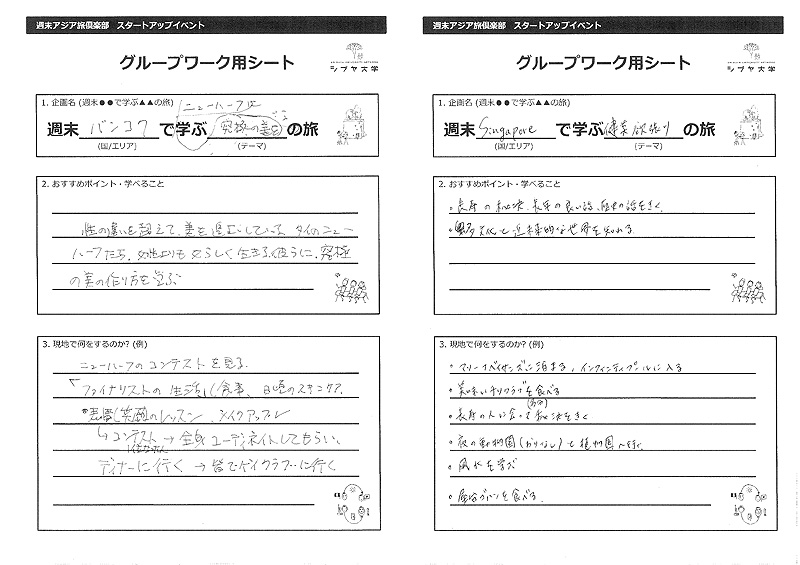 週末アジア旅倶楽部 スタートアップイベント
グループワーク用シート
シブヤ大学
1. 企画名 (週末●●で学ぶ▲▲の旅)
ニューハーフに
週末 バンコク で学ぶ 究極の美 の旅
(国/エリア) (テーマ)
2. おすすめポイント・学べること
性の違いを超えて、美を追求している、タイのニュー
ハーフたち。女性よりも女らしく生きる彼らに、究極
の美の作り方を学ぶ
3. 現地で何をするのか? (例)
ニューハーフのコンテストを見る
ファイナリストの生活 食事、日頃のスキンケア
笑顔のレッスン、メイクアップ
コンテスト → 全身コーディネイトしてもらい、
ディナーに行く → 皆でゲイクラブに行く
週末アジア旅倶楽部 スタートアップイベント
グループワーク用シート
シブヤ大学
1. 企画名 (週末●●で学ぶ▲▲の旅)
週末 Singapore で学ぶ 健康欲張り の旅
(国/エリア) (テーマ)
2. おすすめポイント・学べること
・長寿の秘決、長寿の良い話、歴史の話をきく
・多文化と近未来的な世界を知れる
3. 現地で何をするのか? (例)
・マリーナベイサンズに泊まる、インフィニティプールに入る
・美味しいチリクラブを食べる
・長寿の人に会って秘決をきく
・夜の動物園 と植物園へ行く
・風水を学ぶ
・屋台ゴハンを食べる